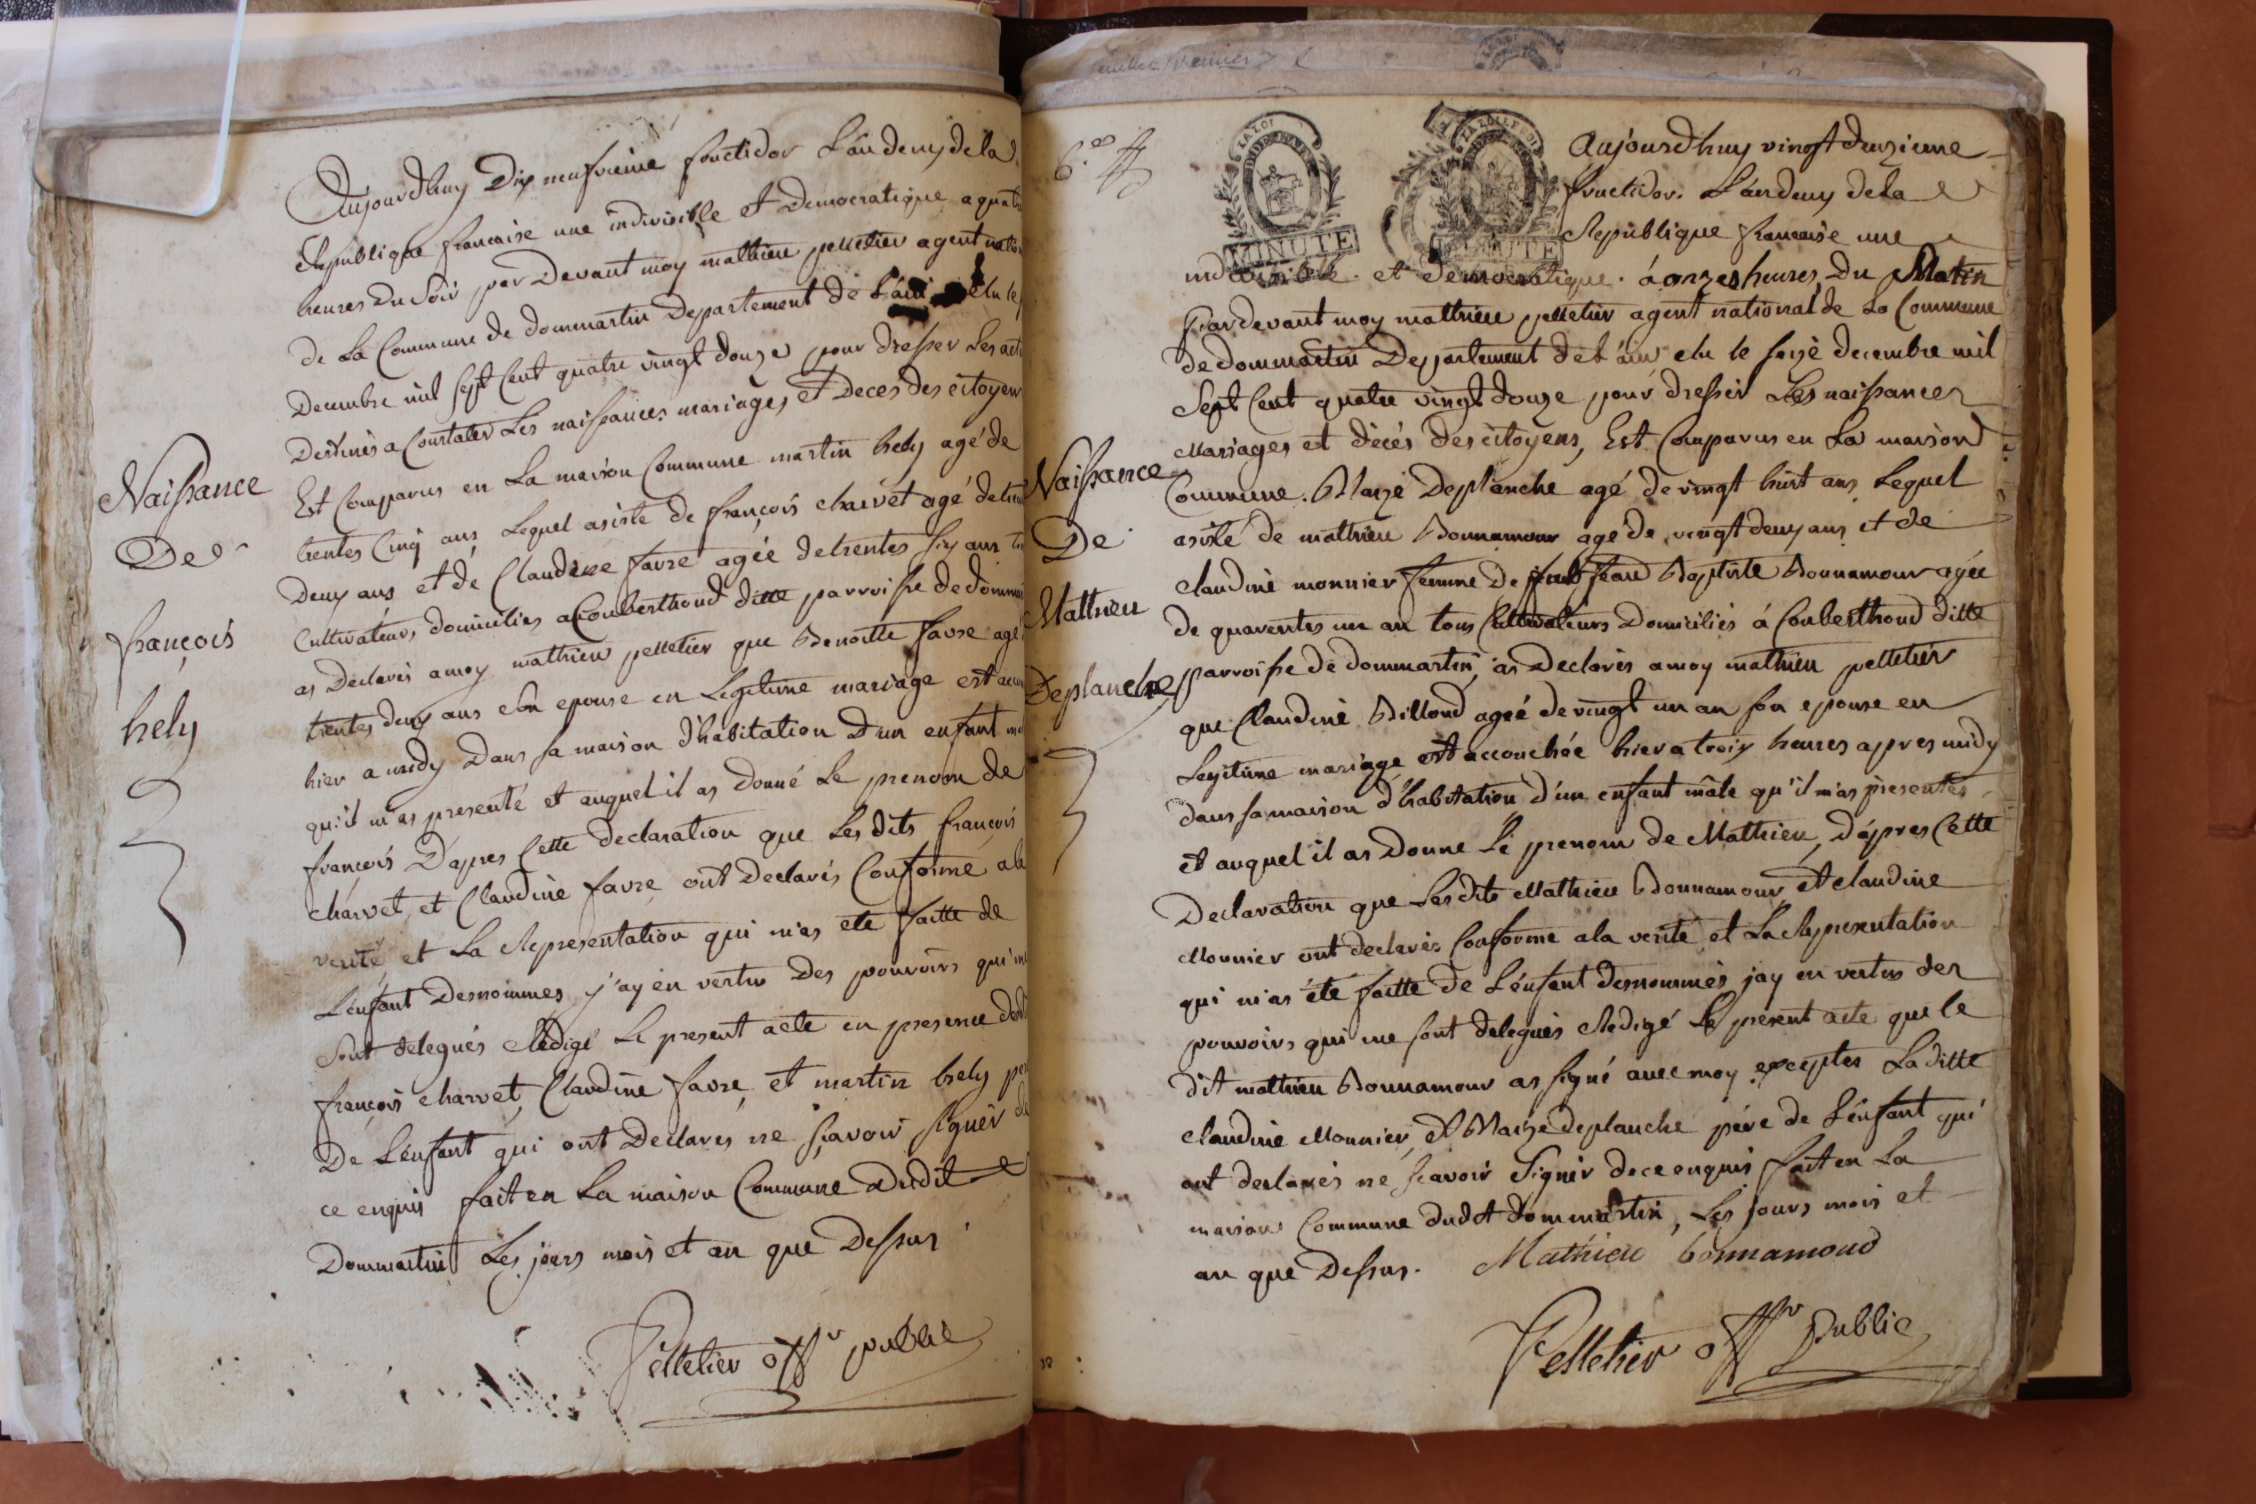 Aujourdhuy Dix neufvieme fructidor L'an deuxe de la
Republique francaise une indivisible et Democratique a quatre
heures Du Soir par Devant moy mathieu pelletier agent
de La Commune de dommartin Departement de L'ain elu le
Decembre mil sept Cent quatre vingt douze pour dresser Les actes
Destinés a Constater Les naissances mariages et Deces des citoyens
Est Comparus en La maison Commune martin hely agé de
trentes Cinq ans Lequel asisté de françois charvet agé de
Deux ans et de Claudine favre agée de trentes six ans
Cultivateurs domicilies a Couberthoud ditte parroisse de
as Declaré a moy mathieu pelletier que Benoitte favre
trentes deux ans son epouse en Legitime mariage est
hier a midy Dans sa maison d'habitation D'un enfant
qu'il m'as presenté et auquel il as Donné Le prenom de
françois D'apres Cette declaration que Les dits françois
charvet et Claudine favre ont Declarés Conforme a la
verité et La Representation qui m'as eté faitte de
L'enfant Denommes j'ay en vertu Des pouvoirs qui me
Sont delegués Redigé Le present acte en presence
françois charvet, Claudine favre et martin hely
De L'enfant qui ont Declarés ne sçavoir signer
ce enquis fait en La maison Commune dudit
Dommartin Les jours mois et an que Dessus
Pelletier offr public
Naissance
De
françois
hely
6.e
LA LOI
MINUTE
MINUTE
Aujourdhuy vingt deuzieme
fructidor. L'an deux de La
Republique francaise une
indivisible et democratique. á onzes heures Du Matin
pardevant moy mathieu pelletier agent national de La Commune
de dommartin Departement de L'ain elu le seize decembre mil
Sept Cent quatre vingt douze pour dresser Les naissances
Mariages et décés des citoyens, Est Comparus en La maison
Commune. Blaize Deplanche agé de vingt huit ans Lequel
asisté de mathieu Bonnamour agé de vingt deux ans et de
claudine monnier femme de Jean Baptiste Bonnamour agée
de quarentes un an tous Cultivateurs Domiciliés á Couberthoud ditte
parroisse de dommartin, as Declarés a moy mathieu pelletier
que Claudine Billoud ageé de vingt un an son epouse en
Legitime mariage est accouchée hier a trois heures apres midy
dans sa maison d'habitation d'un enfant mâle qu'il m'as presentés
et auquel il as Donne Le prenom de Mathieu, D'apres Cette
Declaration que Les dits Mathieu Bonnamour, et claudine
Monnier ont declarés Conforme a la verité et La Representation
qui m'as été faitte de L'enfant denommés jay en vertus des
pouvoirs qui me sont delegués Redigé Le present acte que le
dit mathieu Bonnamour as signé avec moy exceptes La ditte
claudine Monnier, et Blaize deplanche pére de L'enfant qui
ont declarés ne sçavoir Signer de ce enquis fait en La
maison Commune dudit dommartin, Les jours mois et
an que Dessus. Mathieu bonnamoud
Pelletier offr public
Naissance
De
Mathieu
Deplanche